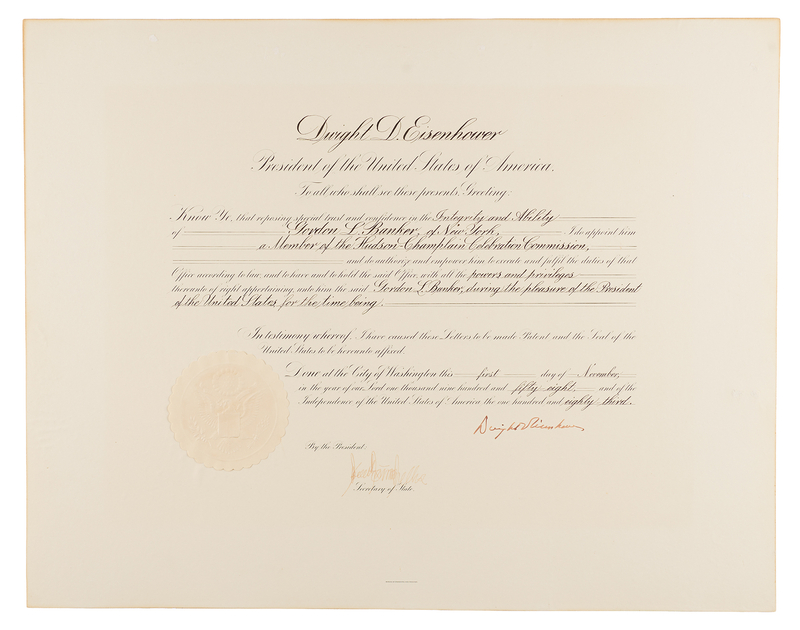 Dwight D. Eisenhower
President of the United States of America.
To all who shall see these presents, Greeting:
Know Ye, that reposing special trust and confidence in the Integrity and Ability
of Gordon L. Banker, of New York, I do appoint him
a Member of the Hudson-Champlain Celebration Commission,
and do authorize and empower him to execute and fulfil the duties of that
Office according to law, and to have and to hold the said Office, with all the powers and privileges
thereunto of right appertaining unto him the said Gordon L. Banker, during the pleasure of the President
of the United States for the time being.
In testimony whereof, I have caused these Letters to be made Patent and the Seal of the
United States to be hereunto affixed.
Done at the City of Washington this first day of November,
in the year of our Lord one thousand nine hundred and fifty eight, and of the
Independence of the United States of America the one hundred and eighty third.
Dwight D Eisenhower
By the President:
Secretary of State.